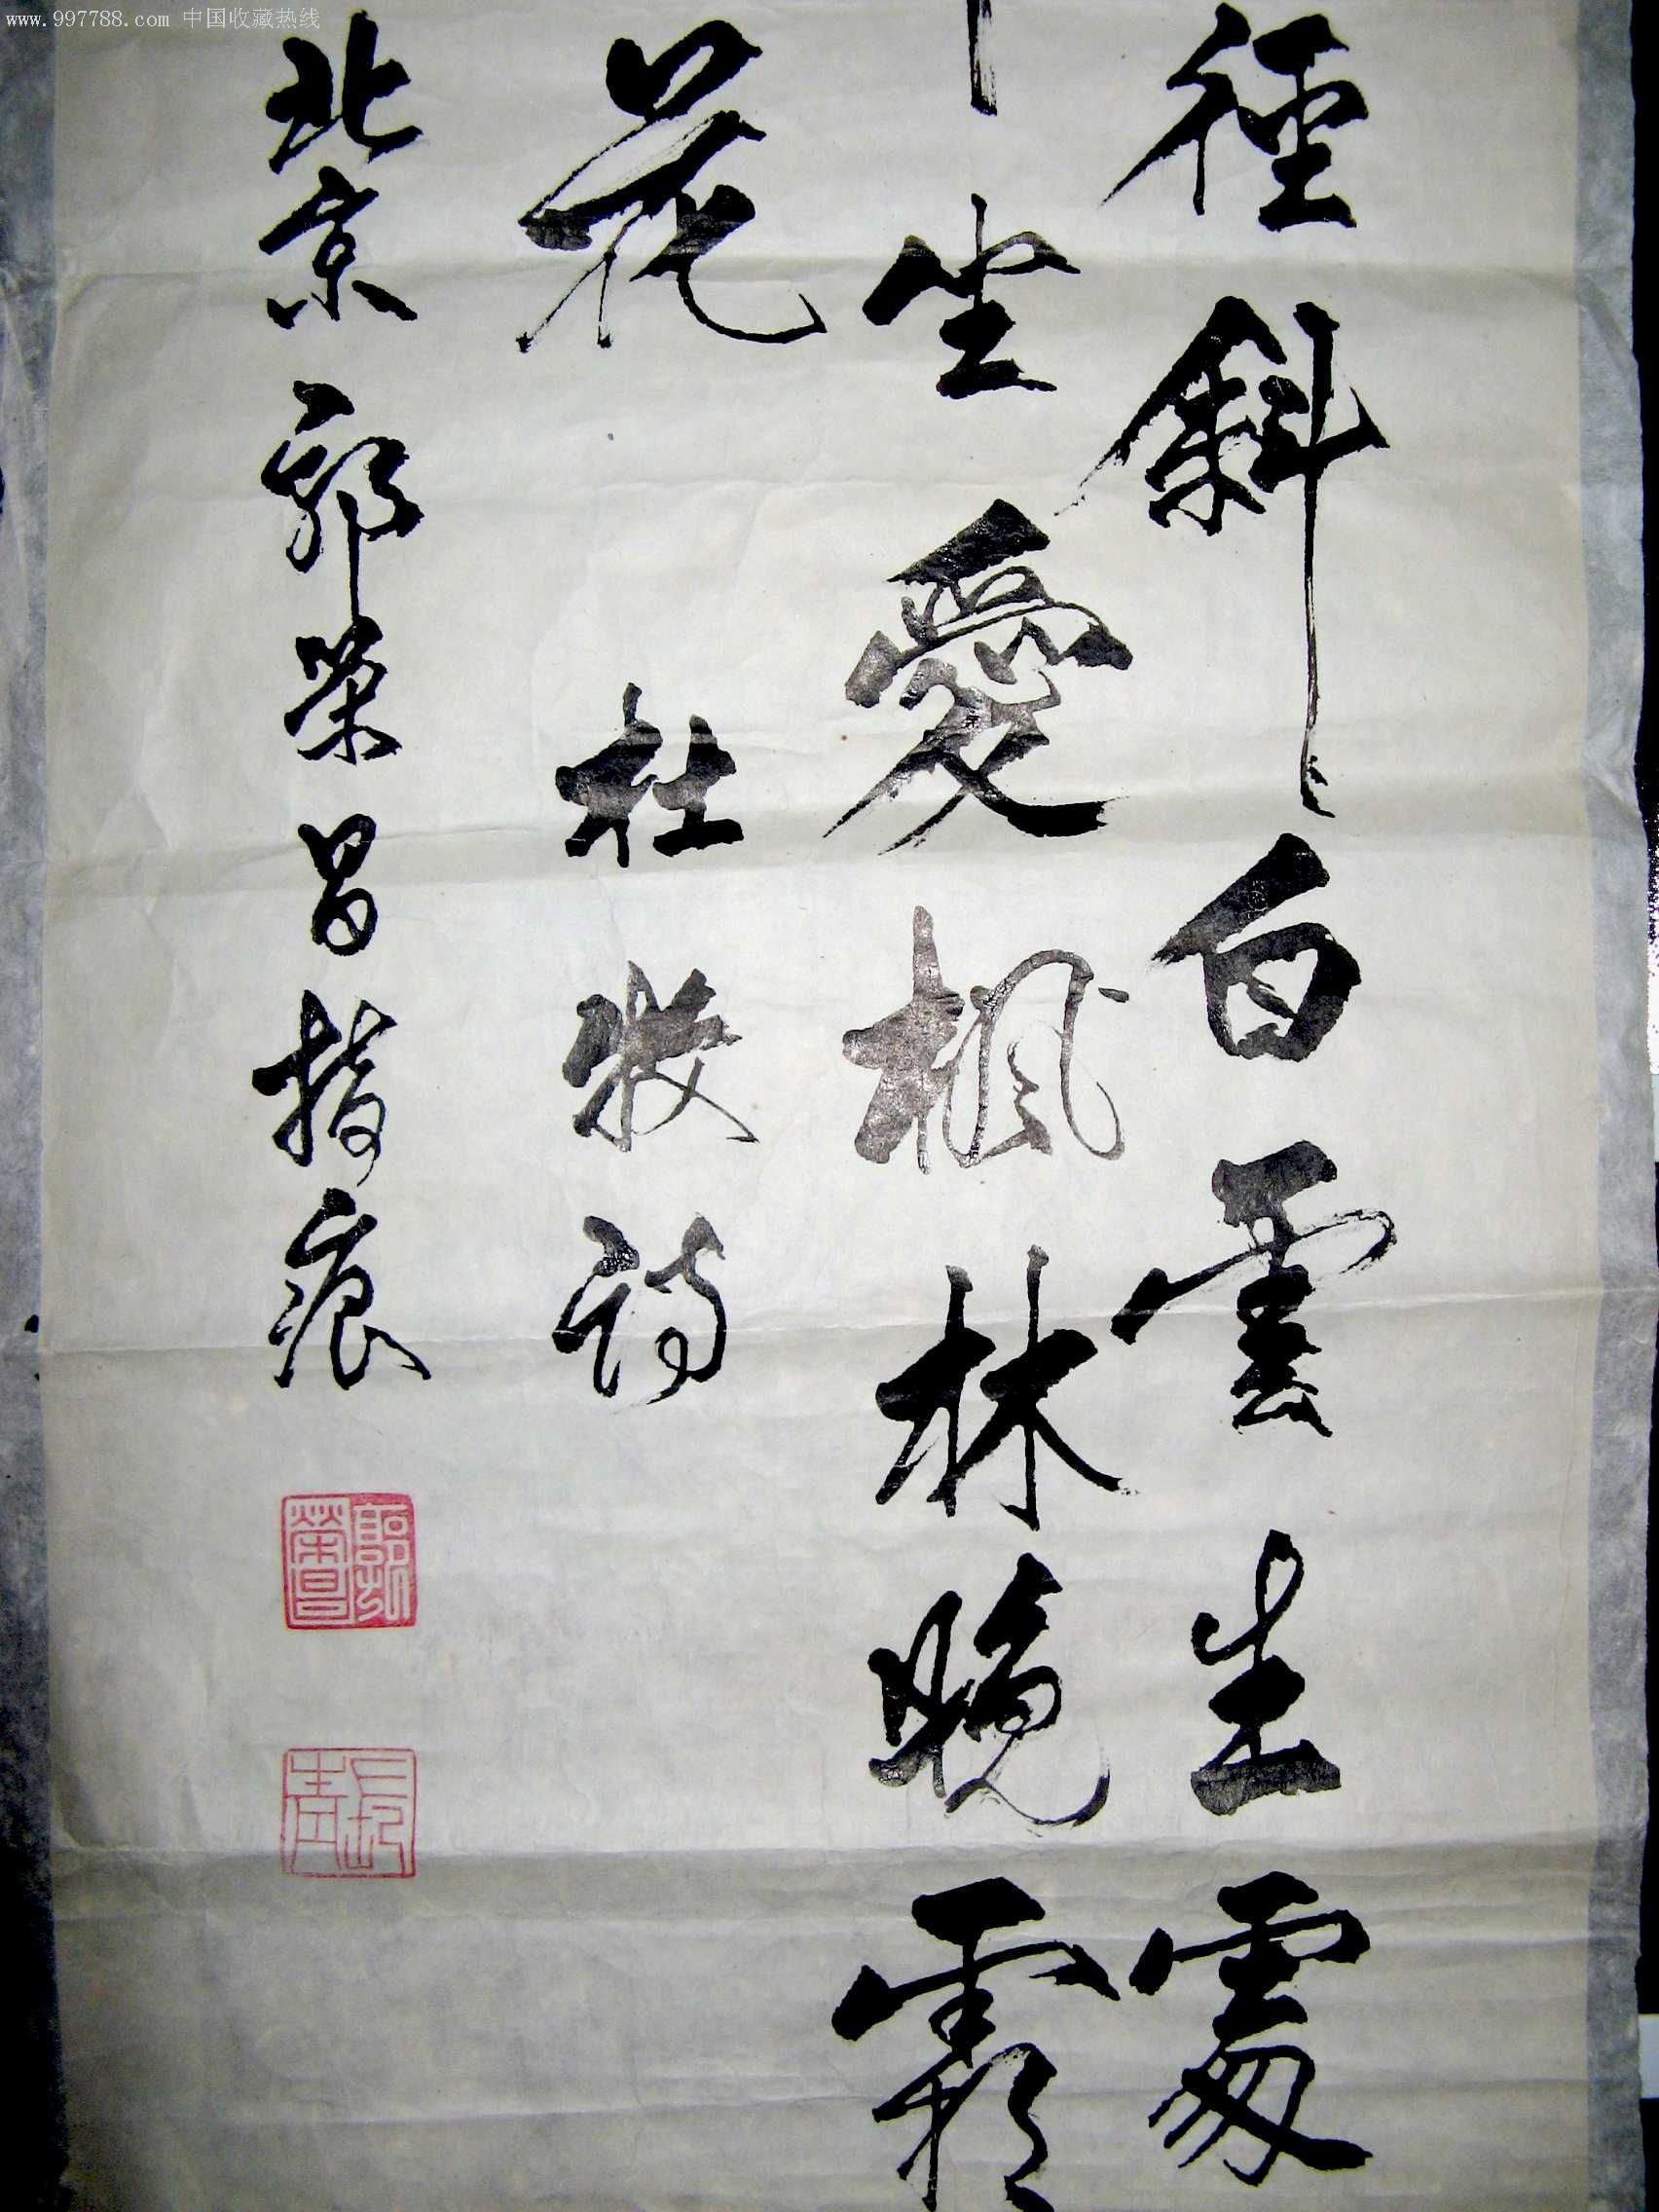 www.997788.com 中国收藏热线
徑斜白雲生處
坐愛楓林晚霜
花
杜牧詩
北京郭榮昌指痕
郭印榮昌